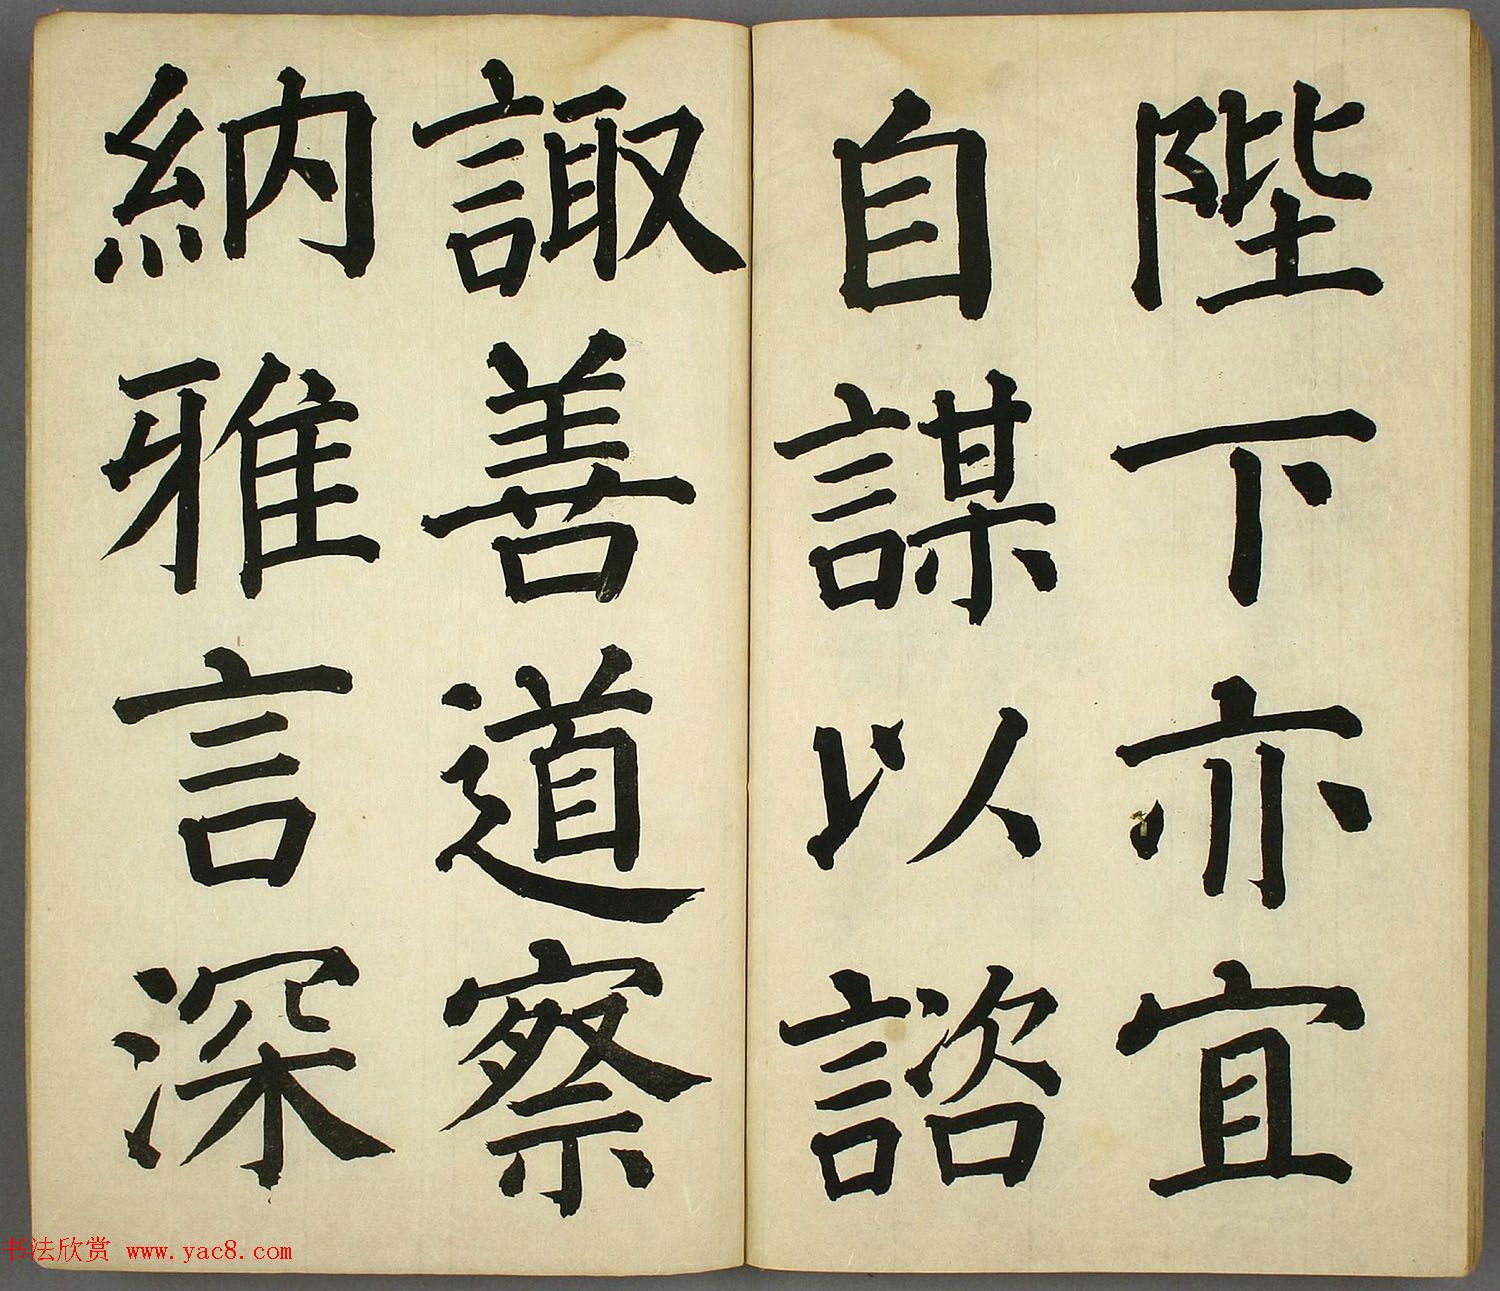 陛下亦宜
自謀以諮
諏善道察
納雅言深
书法欣赏 www.yac8.com